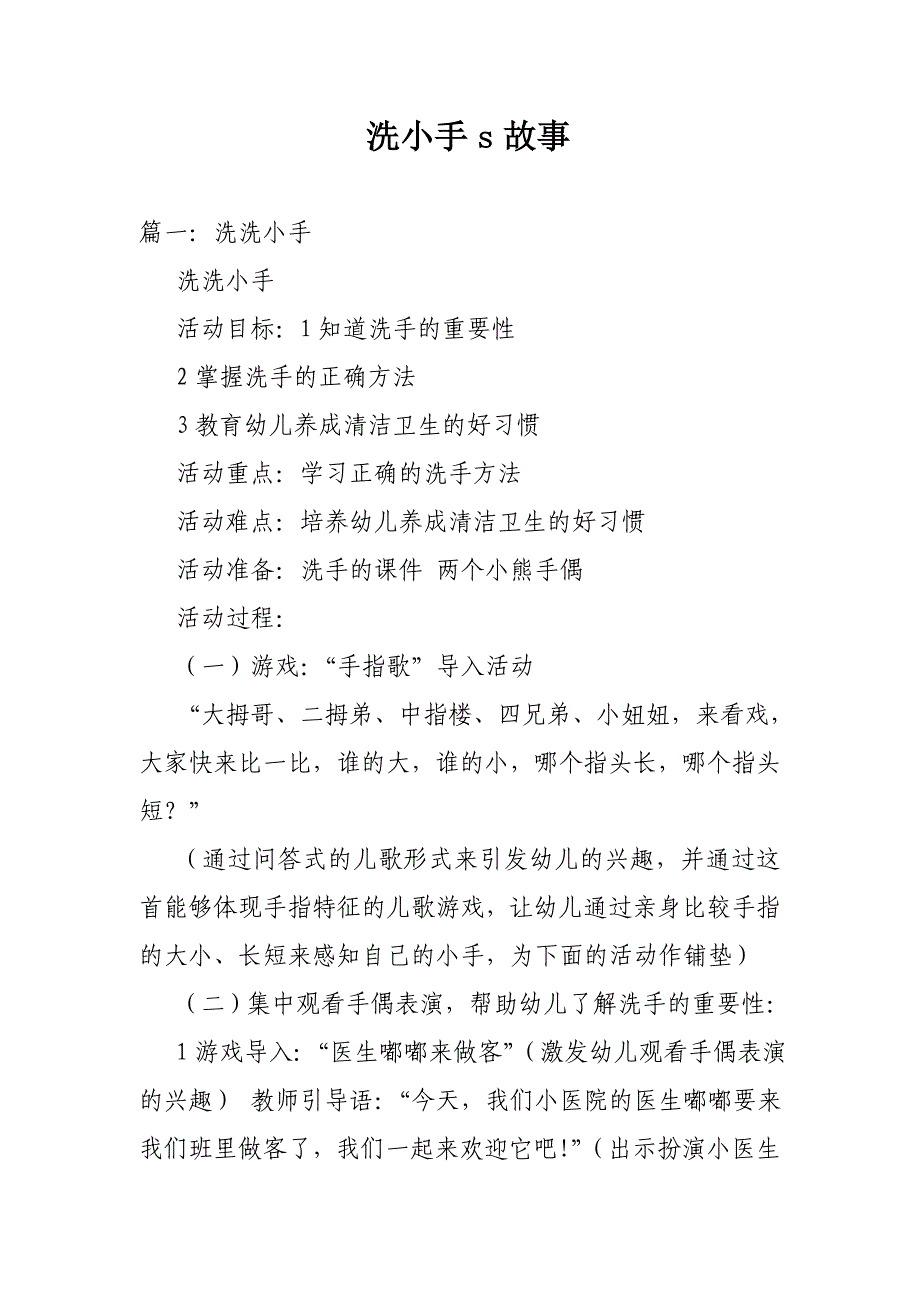 洗小手 s 故事
篇一：洗洗小手
洗洗小手
活动目标：1 知道洗手的重要性
2 掌握洗手的正确方法
3 教育幼儿养成清洁卫生的好习惯
活动重点：学习正确的洗手方法
活动难点：培养幼儿养成清洁卫生的好习惯
活动准备：洗手的课件 两个小熊手偶
活动过程：
（一）游戏：“手指歌”导入活动
“大拇哥、二拇弟、中指楼、四兄弟、小妞妞，来看戏，
大家快来比一比，谁的大，谁的小，哪个指头长，哪个指头
短？”
（通过问答式的儿歌形式来引发幼儿的兴趣，并通过这
首能够体现手指特征的儿歌游戏，让幼儿通过亲身比较手指
的大小、长短来感知自己的小手，为下面的活动作铺垫）
（二）集中观看手偶表演，帮助幼儿了解洗手的重要性：
1 游戏导入：“医生嘟嘟来做客”（激发幼儿观看手偶表演
的兴趣） 教师引导语：“今天，我们小医院的医生嘟嘟要来
我们班里做客了，我们一起来欢迎它吧！”（出示扮演小医生